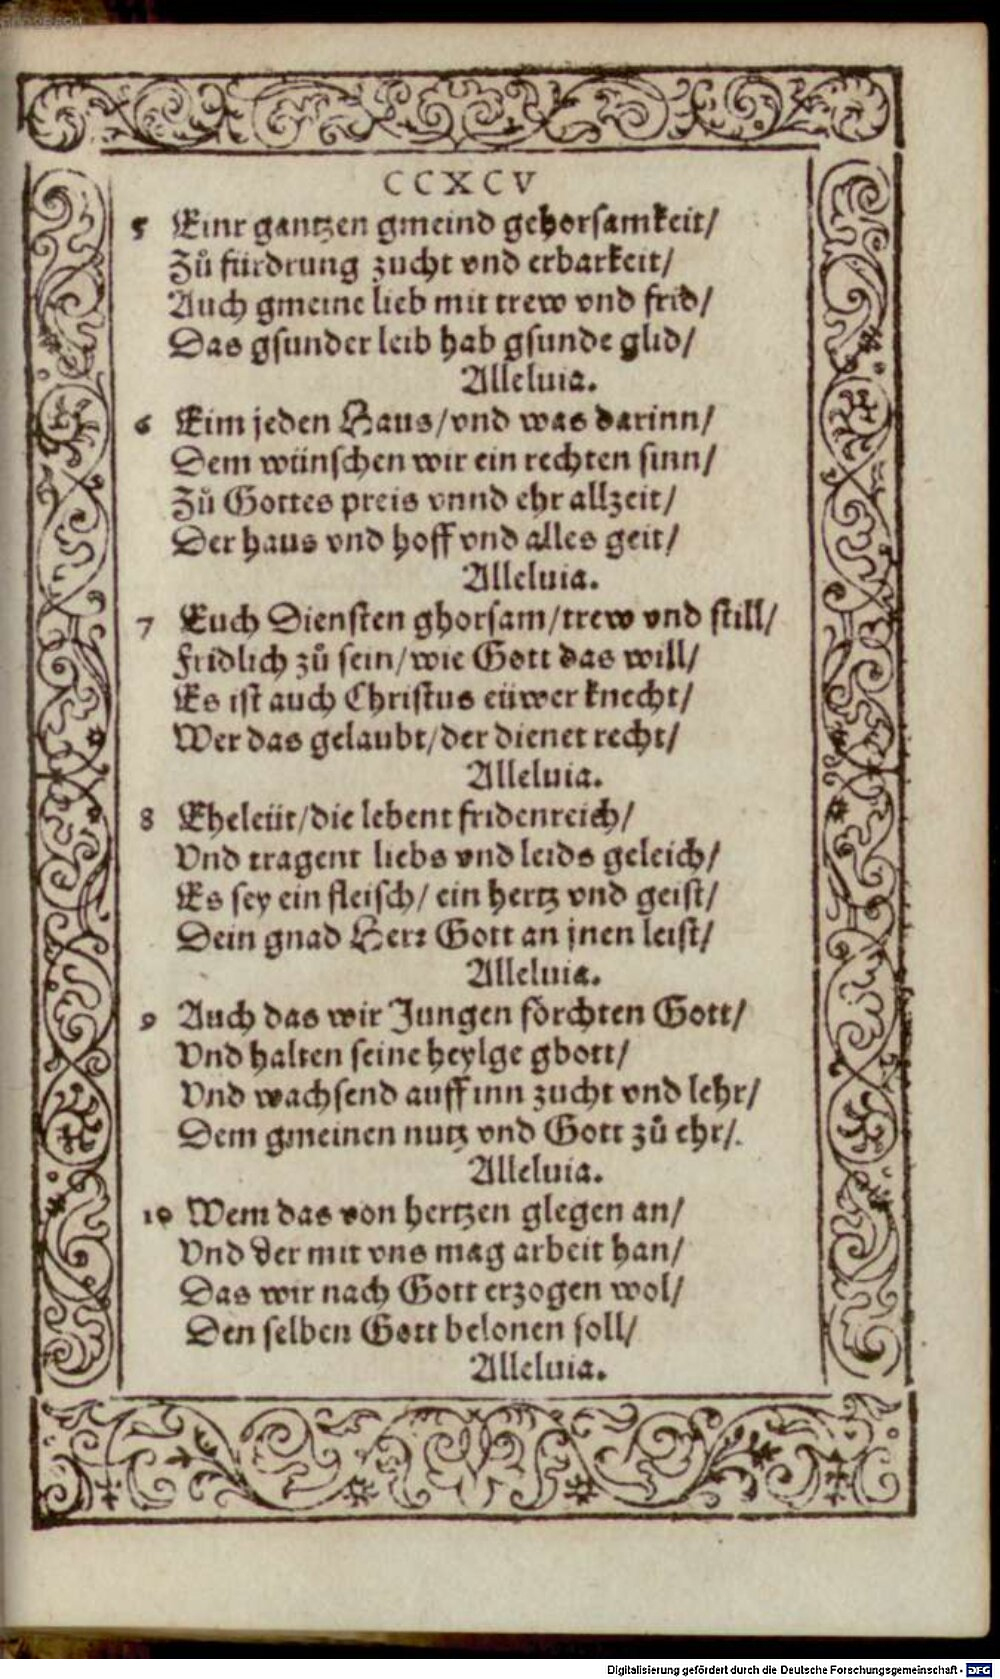 CCXCV
5 Einr gantzen gmeind gehorsamkeit/
Zů fürdrung zucht vnd erbarkeit/
Auch gmeine lieb mit trew vnd frid/
Das gsunder leib hab gsunde glid/
Alleluia.
6 Eim jeden Haus/vnd was darinn/
Dem wünschen wir ein rechten sinn/
Zů Gottes preis vnnd ehr allzeit/
Der haus vnd hoff vnd alles geit/
Alleluia.
7 Euch Diensten ghorsam/trew vnd still/
Fridlich zů sein/wie Gott das will/
Es ist auch Christus eüwer knecht/
Wer das gelaubt/der dienet recht/
Alleluia.
8 Eheleüt/die lebent fridenreich/
Vnd tragent liebs vnd leids geleich/
Es sey ein fleisch/ ein hertz vnd geist/
Dein gnad Herr Gott an jnen leist/
Alleluia.
9 Auch das wir Jungen förchten Gott/
Vnd halten seine heylge gbott/
Vnd wachsend auff inn zucht vnd lehr/
Dem gmeinen nutz vnd Gott zů ehr/.
Alleluia.
10 Wem das von hertzen glegen an/
Vnd der mit vns mag arbeit han/
Das wir nach Gott erzogen wol/
Den selben Gott belonen soll/
Alleluia.
Digitalisierung gefördert durch die Deutsche Forschungsgemeinschaft - DFG